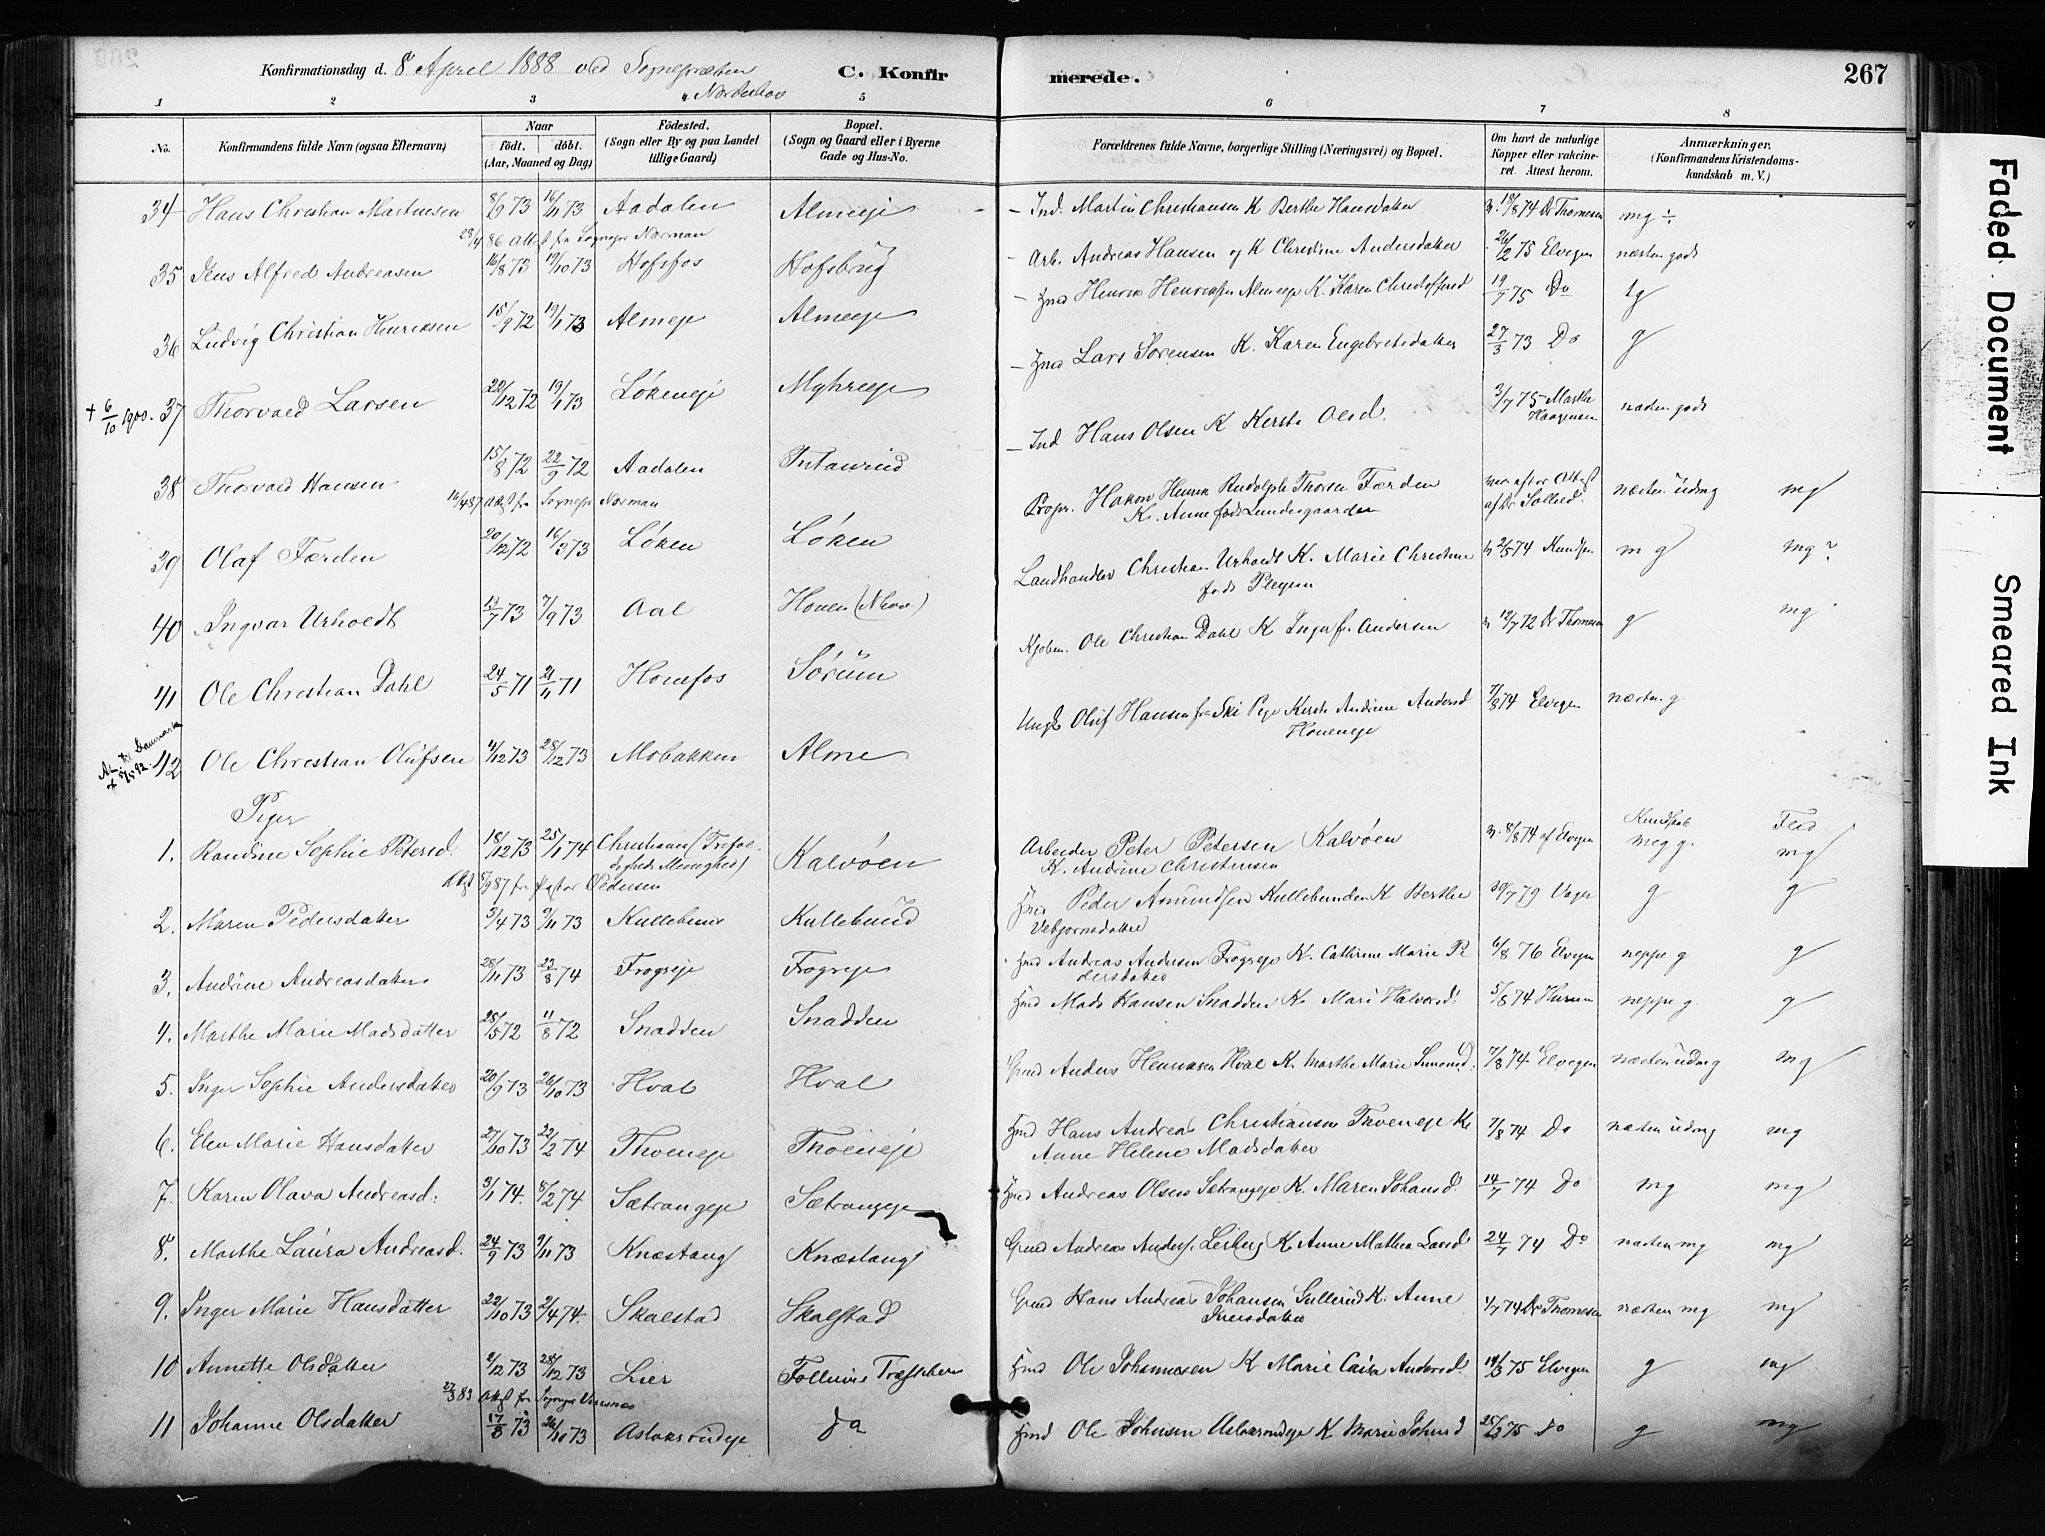 Konfirmationsdag d. 8 April 1888 ved Sognepræsten C. Konfirmerede. 267
Norderhov
1 2 3 4 5 6 7 8
No. Konfirmandens fulde Navn (ogsaa Efternavn) Naar født. døbt. (Aar, Maaned og Dag) Fødested. (Sogn eller By og paa Landet tillige Gaard) Bopæl. (Sogn og Gaard eller i Byerne Gade og Hus-No. Forældrenes fulde Navne, borgerlige Stilling (Næringsvei) og Bopæl. Om havt de naturlige Kopper eller vakcineret. Attest herom. Anmærkninger. (Konfirmandens Kristendomskundskab m. V.)
34 Hans Christian Martinsen 8/9 73 16/11 73 Aadalen Almeeje Ind. Martin Christiansen K Berthe Hansdatter 18/8 74 Dr Thomesen mg ÷
23/4 86 Att fra Sognepr Norman
35 Jens Alfred Andreasen 16/8 73 19/10 73 Hofsfos Hofsbrug Arb. Andreas Hansen og K Christine Andersdatter 26/2 75 Elvegen næsten godt
36 Ludvig Christian Henriksen 15/9 72 19/1 73 Almeje Almeeje Hmd Henrik Henriksen Almeeje K. Karen Christoffersd 19/9 75 Do tg
+ 6/10 1900. 37 Thorvald Larsen 22/12 72 19/1 73 Løkeneje Myhreeje Hmd Lars Sørensen K. Karen Engebretsdatter 27/3 73 Do g
38 Thorvald Hansen 15/8 72 22/9 72 Aadalen Ind Hans Olsen K Kersti Olsd. 3/7 75 Marthe Haagensen næsten godt
16/4 87 Attest fra Sognepr Norman
39 Olaf Færden 20/12 72 16/3 73 Løken Løken Propr. Hakon Henrik Rudolph Thorsen Færden K. Anne født Lundesgaarden vac. efter Attest af Dr Sollied næsten udmg mg
40 Ingvar Urholdt 11/7 73 7/9 73 Aal Honen (Nhov) Landhandler Christian Urholdt K. Marie Christine født Pleysen 2/5 74 Knudsen mg mg ?
41 Ole Christian Dahl 24/5 71 21/11 71 Honefos Sørum Kjøbm. Ole Christian Dahl K Inger f. Andersen 19/7 72 Dr Thomesen g mg
42 Ole Christian Olufsen 4/12 73 28/12 73 Mobakken Alme Ungk Oluf Hansen fra Ski Pige Kersti Andrine Andersd Honeneje 7/8 74 Elvegen næsten g.
Piger Kundskab Flid
1. Randine Sophie Petersd. 18/12 73 25/1 74 Christiania (Trefoldigheds Menighed) Kalvøen Arbeider Peter Petersen Kalvøen K. Andrine Christensen 8/8 74 af Elvegen meg g. mg
Attest 5/9 87 fra Pastor Pedersen
2. Maren Pedersdatter 3/4 73 9/11 73 Kullebund Kullebund Hmd Peder Amundsen Kullebunden K Berthe Vebjørnsdatter 30/7 79 g g
3. Andrine Andreasdatter 28/11 73 23/8 74 Frogseje Frogseje Hmd Andreas Andersen Frogseje K. Cathrine Marie Pedersdatter 6/8 76 Elvegen neppe g g
4. Marthe Marie Madsdatter 25/5 72 11/8 72 Snadden Snadden Hmd Mads Hansen Snadden K. Mari Halvorsd. 5/8 74 Hurum neppe g. g
5. Inger Sophie Andersdatter 20/9 73 26/10 73 Hval Hval Grmd Anders Henriksen Hval K. Marthe Marie Simensd. 7/8 74 Elvegen næsten udmg mg
6. Elen Marie Hansdatter 27/10 73 22/2 74 Thoeneje Thoeneje Hmd Hans Andreas Christiansen Thoeneje K. Anne Helene Madsdatter 7/8 74 Do næsten udmg mg
7. Karen Olava Andreasd. 3/1 74. 8/2 74 Sætrangeje Sætrangeje Hmd Andreas Olsen Sætrangeje K. Maren Johansd. 14/7 74 Do mg mg
8. Marthe Laura Andreasd. 24/9 73 9/11 73 Knæstang Knæstang Grmd Andreas Anders. Lerberg K. Anne Mathea Larsd 24/7 74 Do næsten mg mg
9. Inger Marie Hansdatter 22/10 73 2/4 74. Skalstad Skalstad Grmd Hans Andreas Johansen Gullerud K. Anne Iversdatter 4/7 74 Dr Thomesen næsten mg mg
10 Annette Olsdatter 2/12 73 28/12 73 Lier Follum Træsliberi Hmd Ole Johannesen K Marie Caisa Andersd. 14/3 75 Elvegen g mg
27/3 83 Attest fra Sognepr
11 Johanne Olsdatter 17/8 73 26/10 73 Aslaksrudeje Do Hmd Ole Johnsen Aslaksrudeje K Marie Johnsd 25/3 75 Do g mg
Faded Document
Smeared Ink